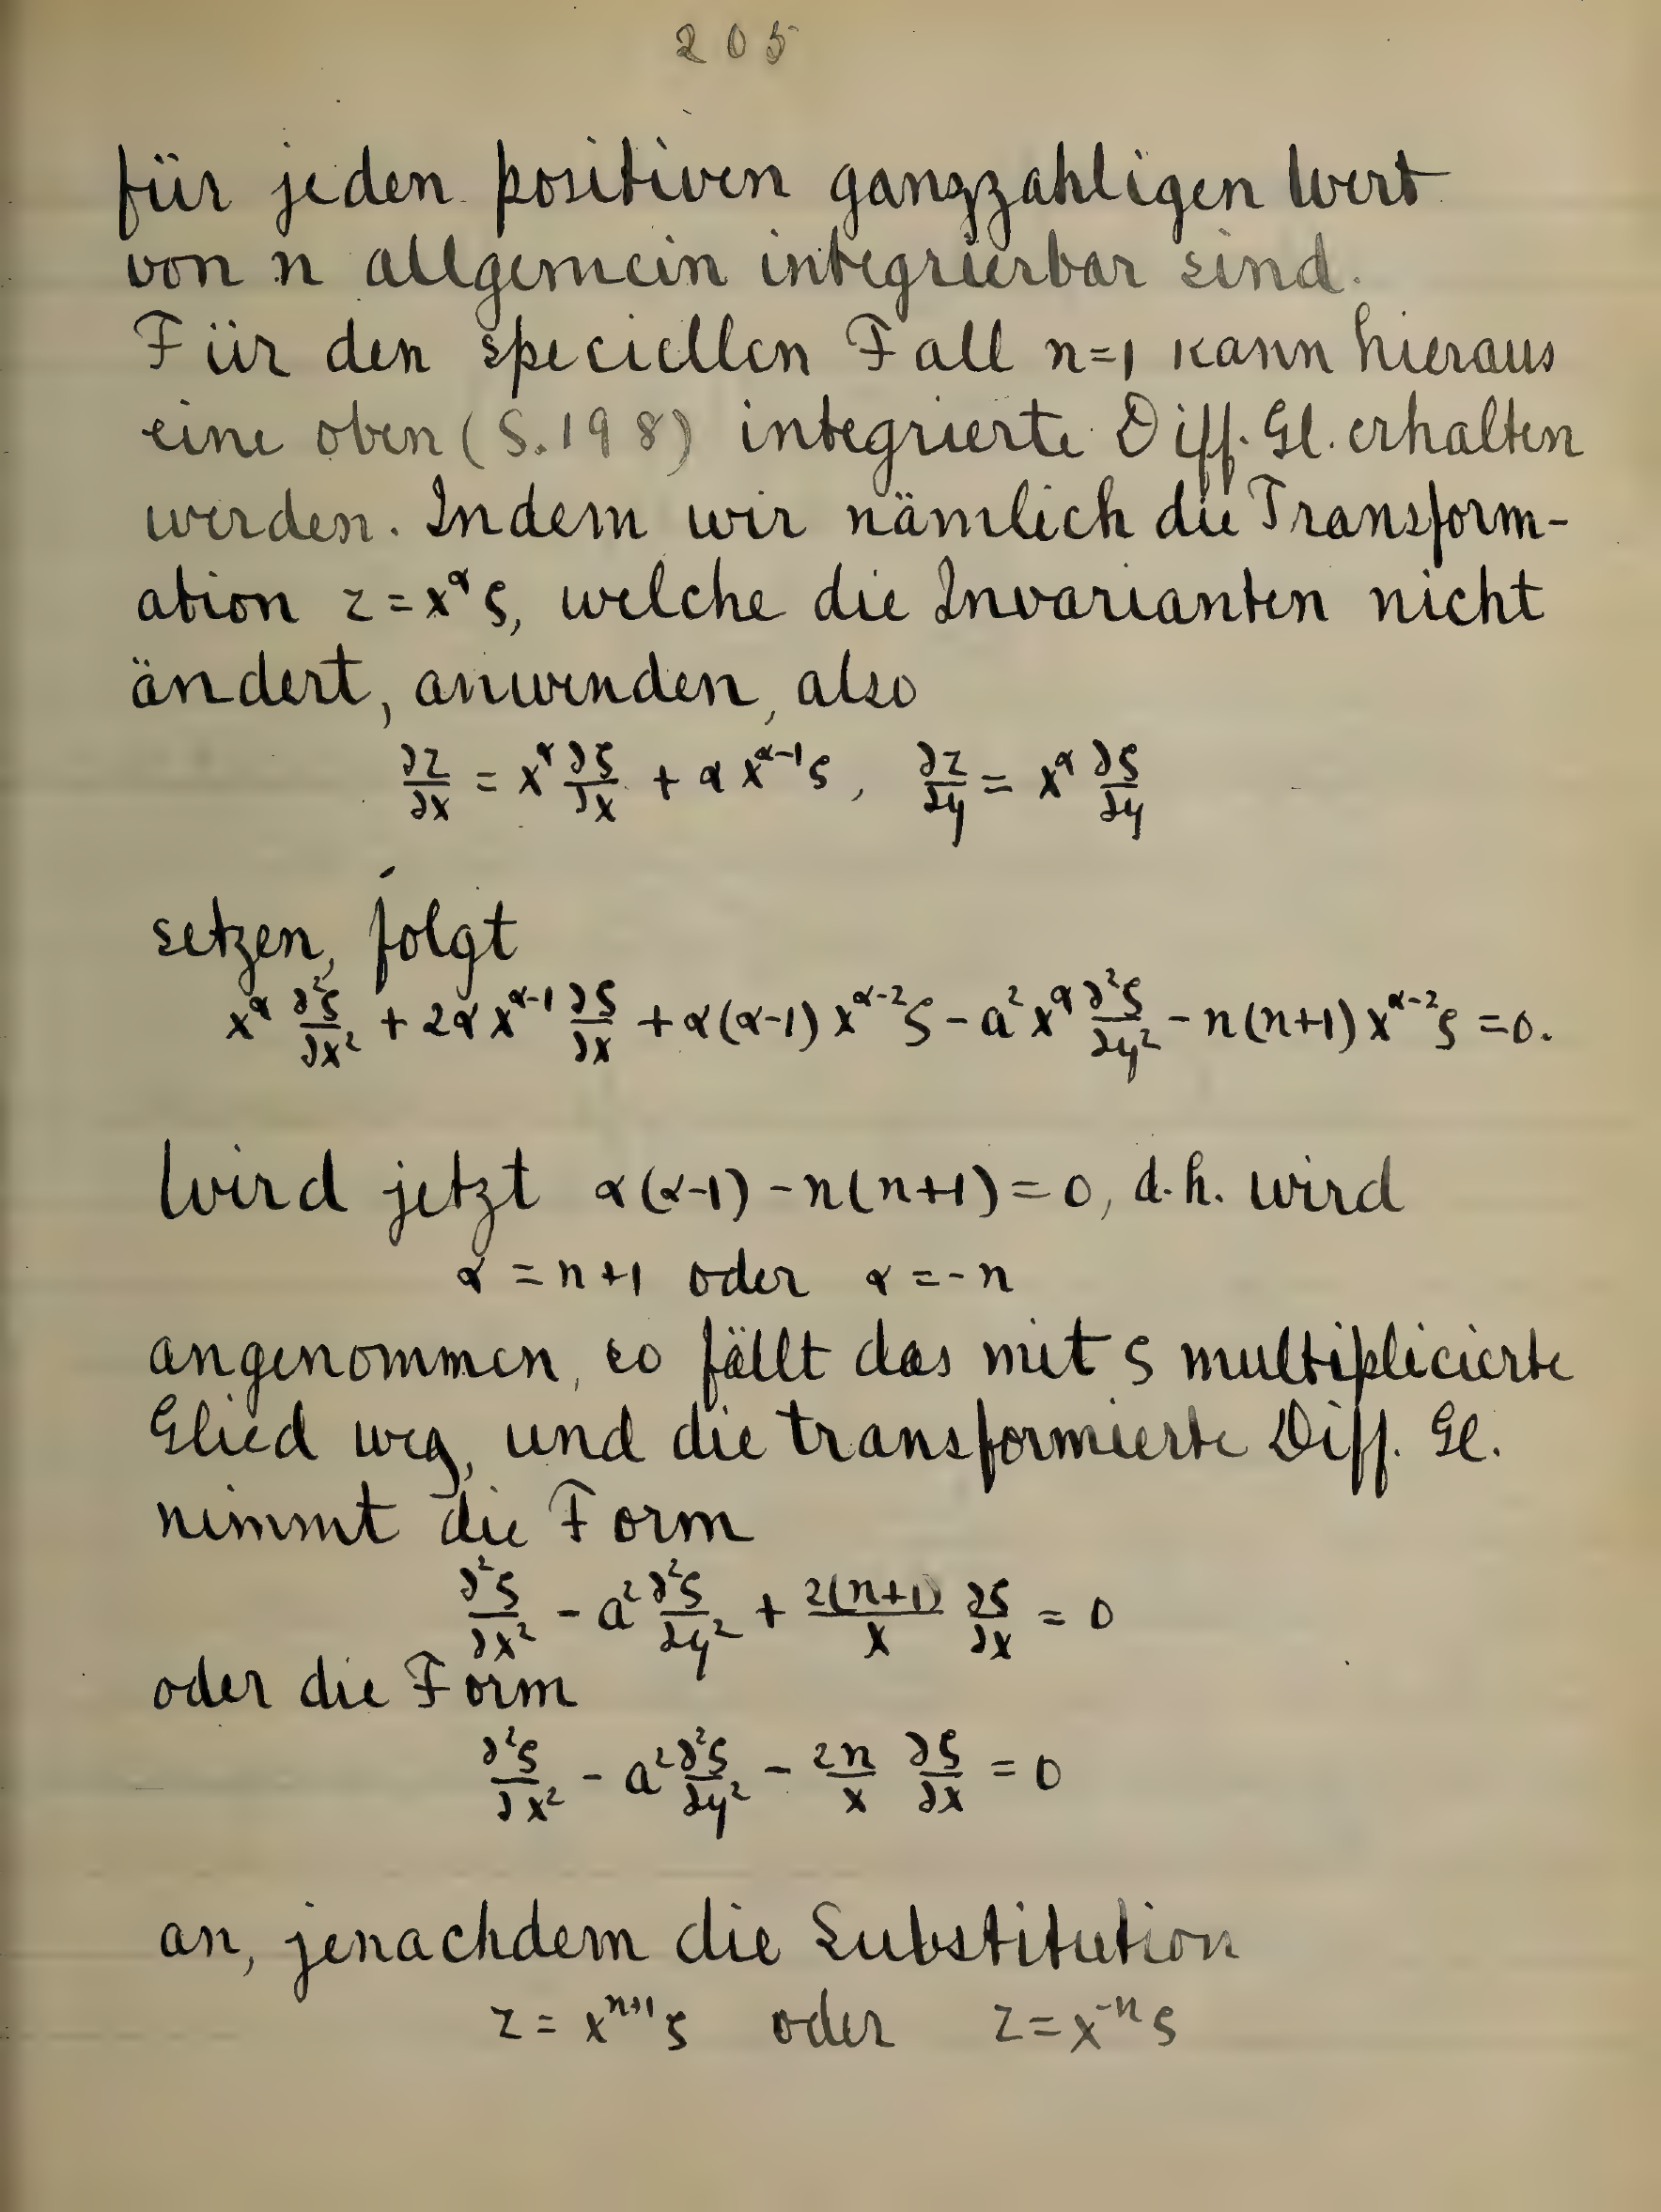 205
für jeden positiven ganzzahligen Wert
von n allgemein integrierbar sind.
Für den speciellen Fall n=1 kann hieraus
eine oben (S. 198) integrierte Diff. Gl. erhalten
werden. Indem wir nämlich die Transform-
ation z = x^α ζ, welche die Invarianten nicht
ändert, anwenden, also
∂z/∂x = x^α ∂ζ/∂x + α x^(α-1) ζ, ∂z/∂y = x^α ∂ζ/∂y
setzen, folgt
x^α ∂²ζ/∂x² + 2α x^(α-1) ∂ζ/∂x + α(α-1) x^(α-2) ζ - a² x^α ∂²ζ/∂y² - n(n+1) x^(α-2) ζ = 0.
Wird jetzt α(α-1) - n(n+1) = 0, d.h. wird
α = n+1 oder α = -n
angenommen, so fällt das mit ζ multiplicierte
Glied weg, und die transformierte Diff. Gl.
nimmt die Form
∂²ζ/∂x² - a² ∂²ζ/∂y² + 2(n+1)/x ∂ζ/∂x = 0
oder die Form
∂²ζ/∂x² - a² ∂²ζ/∂y² - 2n/x ∂ζ/∂x = 0
an, jenachdem die Substitution
z = x^(n+1) ζ oder z = x^(-n) ζ